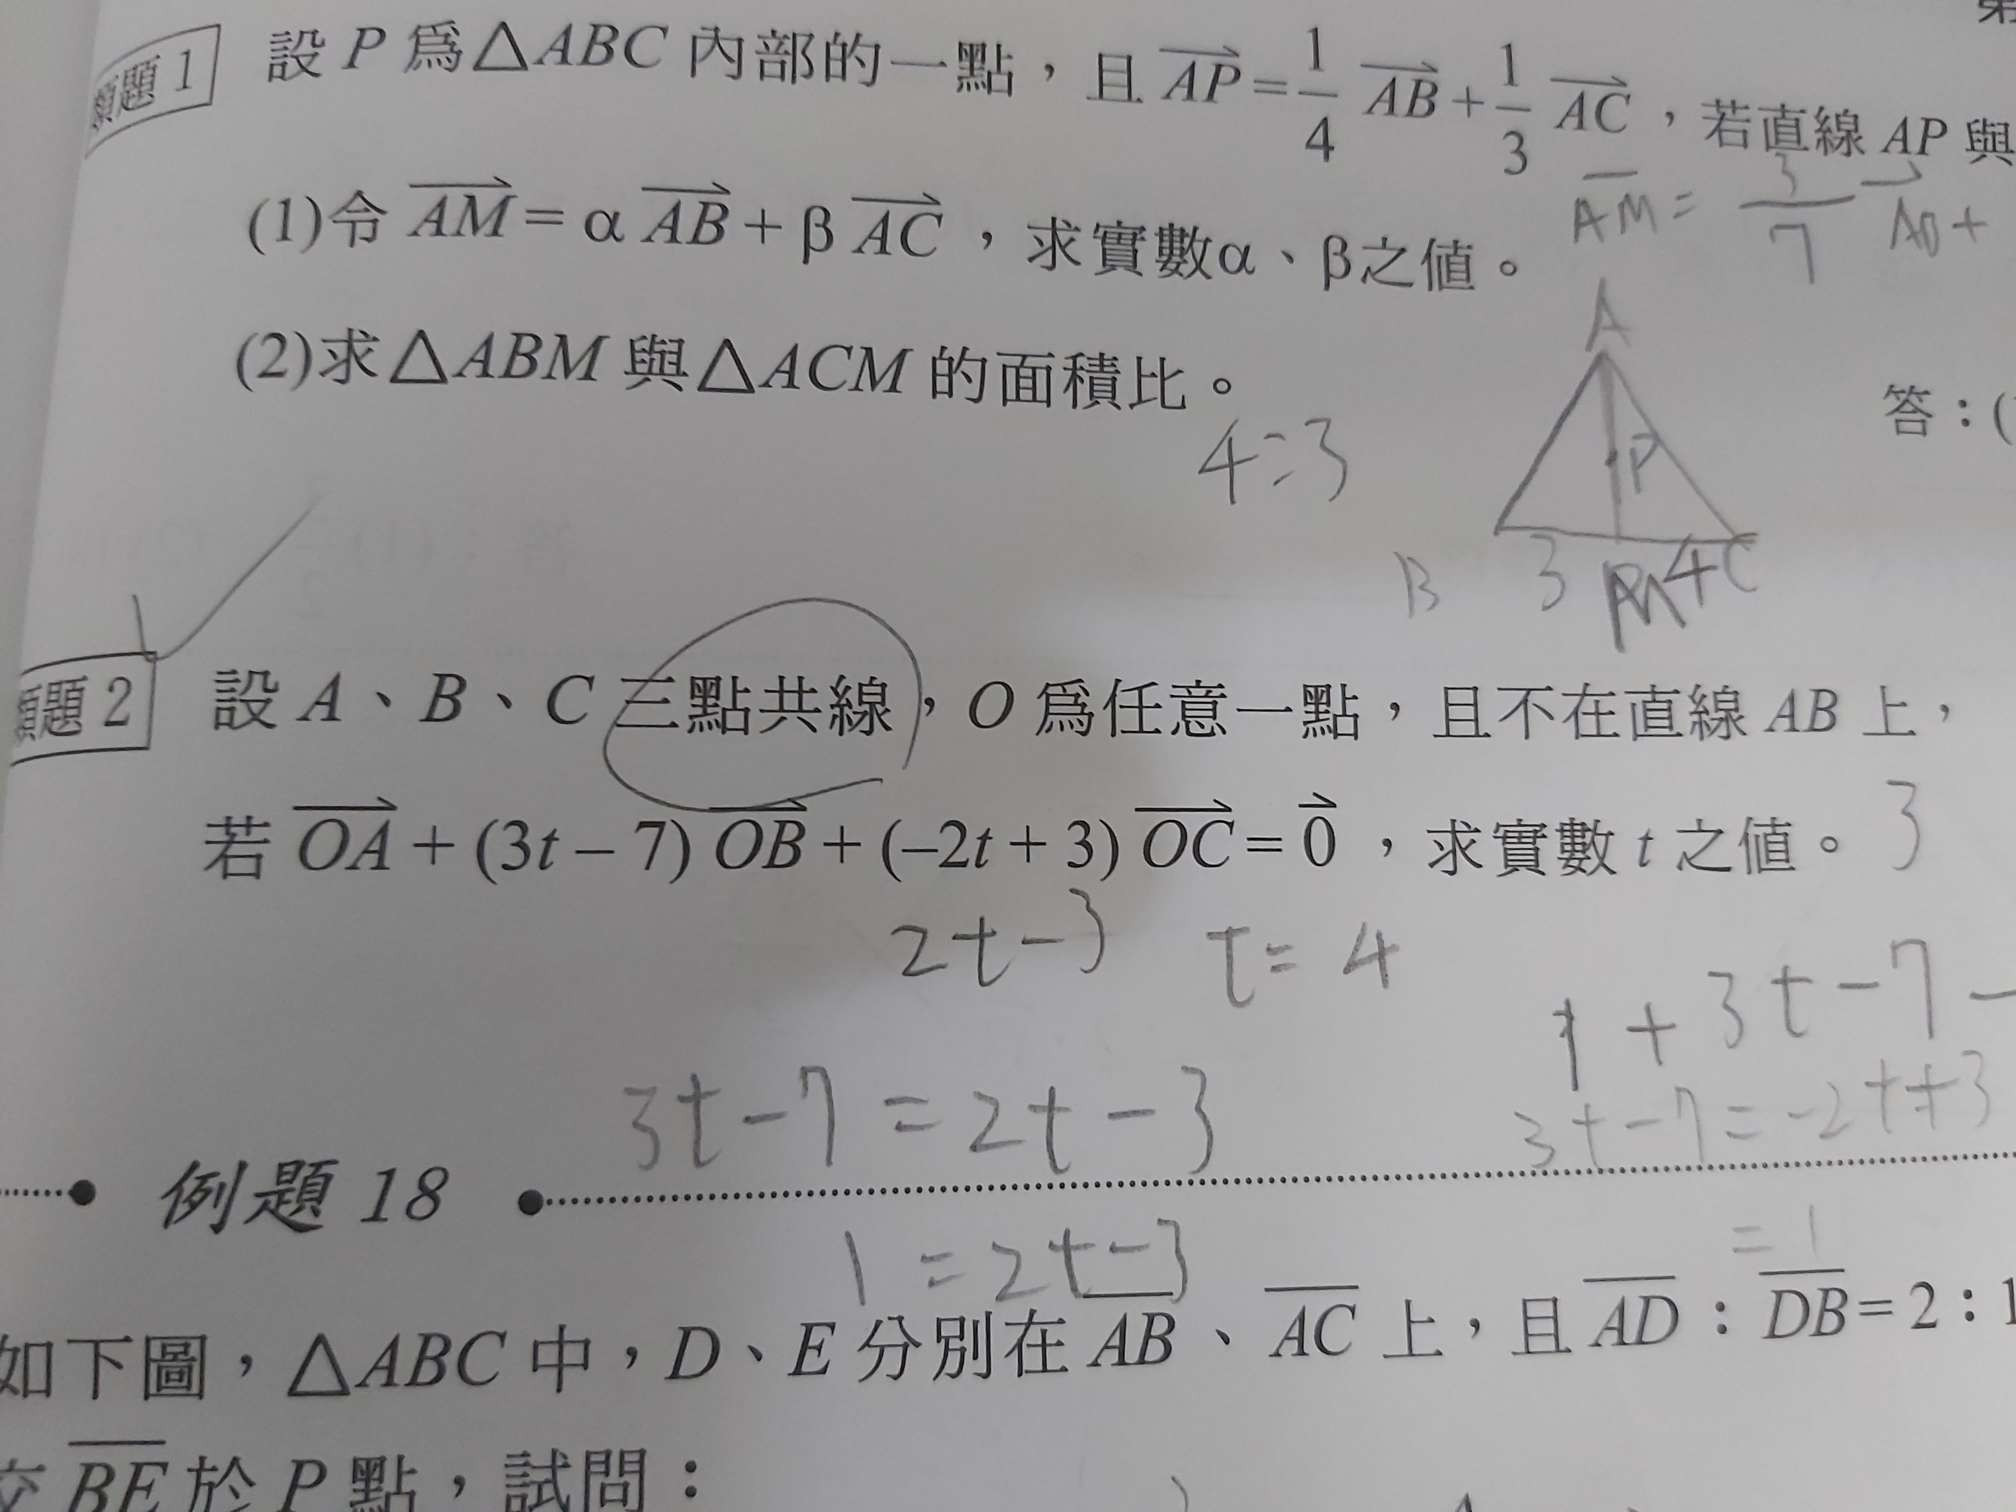 類題1 設 P 為△ABC 內部的一點，且 AP = 1/4 AB + 1/3 AC，若直線 AP 與
(1)令 AM = α AB + β AC，求實數α、β之值。
AM = 3/7 AB +
(2)求△ABM 與△ACM 的面積比。
4:3
答：(
A
P
B 3 M 4 C
類題2 設 A、B、C 三點共線，O 為任意一點，且不在直線 AB 上，
若 OA + (3t – 7) OB + (–2t + 3) OC = 0，求實數 t 之值。 3
2t-3 t=4
1+3t-7-
3t-7=2t-3
3t-7=-2t+3
例題 18
1=2t-3
=1
如下圖，△ABC 中，D、E 分別在 AB、AC 上，且 AD：DB = 2：1
交 BE 於 P 點，試問：